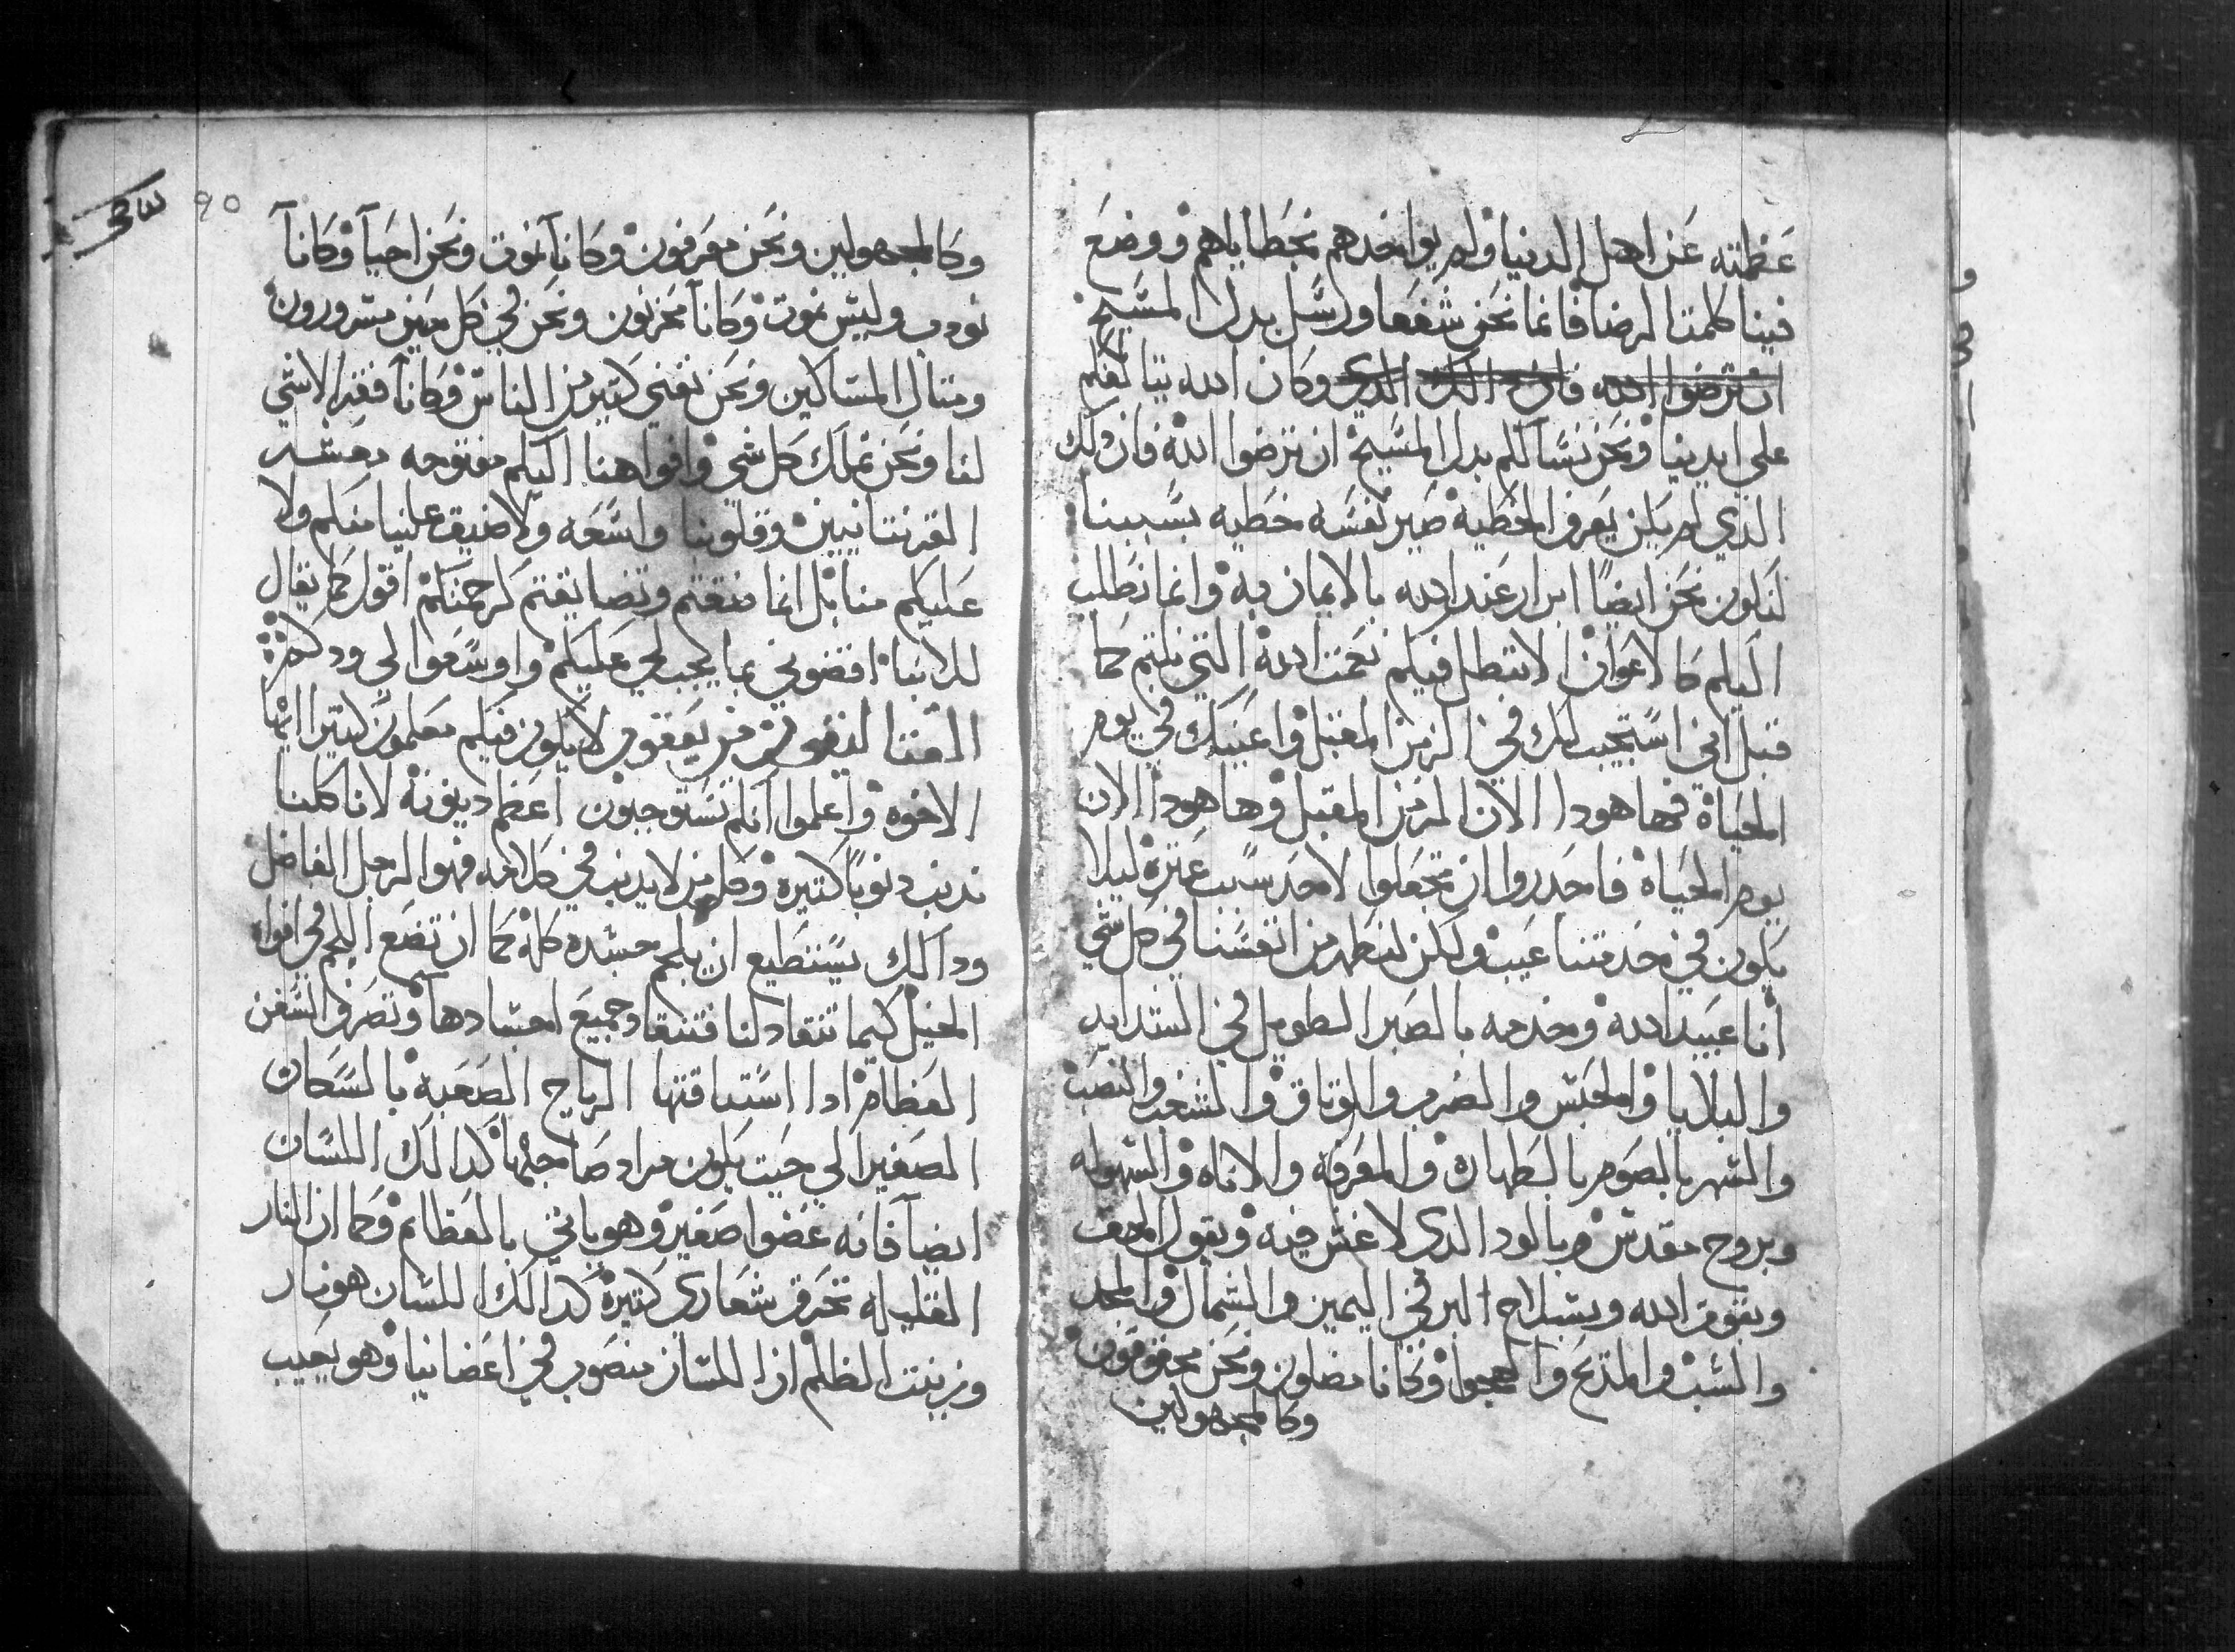 عظمته عن اهل الدنيا ولم يواخدهم بخطاياهم ووضع
فينا كلمت الرضا فانما نحن شفعا ورسل بدل المسيح
ان ترضوا الله وكان الله يتا لفكم
على ايدينا ونحن نسالكم بدل المسيح ان ترضوا الله فان دلك
الدي لم يكن يعرف الخطيه صير نفسه خطيه بسببنا
لنكون نحن ايضًا ابرار عند الله بالايمان به وانما نطلب
اليكم كالاعوان الا تبطل فيكم نعمت الله التي نلتم كما
قبل اني استجيب لك في الزمن المقبل واعينك في يوم
الحياة فها هودا الان الزمن المقبل وها هودا الان
يوم الحياة فاحدروا ان تجعلوا لاحد سبب عترة ليلا
يكون في خدمتنا عيب ولكن لنطهر من انفسنا في كل شي
اننا عبيد الله وخدمه بالصبر الطويل في الشدايد
والبلايا والحبس والضرب والوتاق والشغب والنصب
والسهر بالصوم بالطهارة والمعرفه والاناه والسهوله
وبروح مقدس وبالود الدى لا غش فيه وبقول الحق
وبقوة الله وبسلاح البر في اليمين والشمال والمجد
والسب والمديح والهجوا وكاننا مضلون ونحن محقوقون
وكالمجهولين
90
وكالمجهولين ونحن معرفون وكاننا نموت ونحن احيا وكاننا
نودب وليس نموت وكاننا محزنون ونحن في كل حين مسرورون
ومتال المساكين ونحن نغني كتير من الناس وكاننا فقرا لا شي
لنا ونحن نملك كل شي وافواهنا اليكم مفتوحه معشر
القرنتانيين وقلوبنا واسعه ولا ضيق عليكم منا ولا
عليكم منا بل انما ضقتم وتضايقتم كرحمتكم اقول كما يقال
للابنا اقضوني بما يجب لي عليكم واوسعوا لي ودكم
القتاليقون من يعقوب لا يكون فيكم معلمون كتيرا ايها
الاخوه واعلموا انكم تستوجبون اعظم دينونة لانا كلنا
ندنب دنوبًا كتيره وكل من لا يدنب في كلامه فهوا الرجل الفاضل
ودالك يستطيع ان يلجم جسده كله كما ان تضع اللجم في افواه
الخيل كيما تنقاد لنا فتنقاد جميع اجسادها وتصرف السفن
العظام ادا استاقتها الرياح الصعبة بالسكان
الصغير الي حيت يكون مراد صاحبها كدالك اللسان
ايضا فانه عضوا صغير وهو ياتي بالعظائم وكما ان النار
القليله تحرق شعارى كتيرة كدالك اللسان هو نار
وزينت الظلم ان اللسان منصوب في اعضانيا وهو يعيب